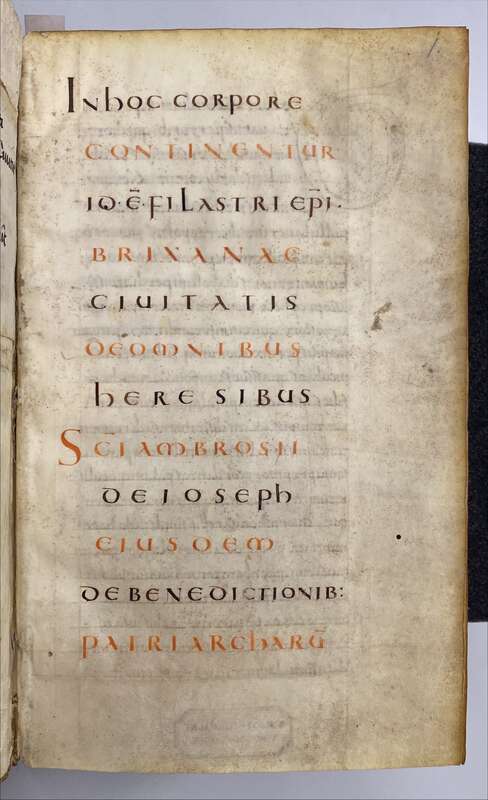 Inhoc corpore
CONTINENTUR
ID·Ē·FILASTRI EP̄I·
BRIXANAE
CIUITATIS
DEOMNIBUS
heRE SIBUS
SCI AMBROSII
DE IOSEPh
EIUSDEM
DE BENEDICTIONIB:
PATRIARChARŪ